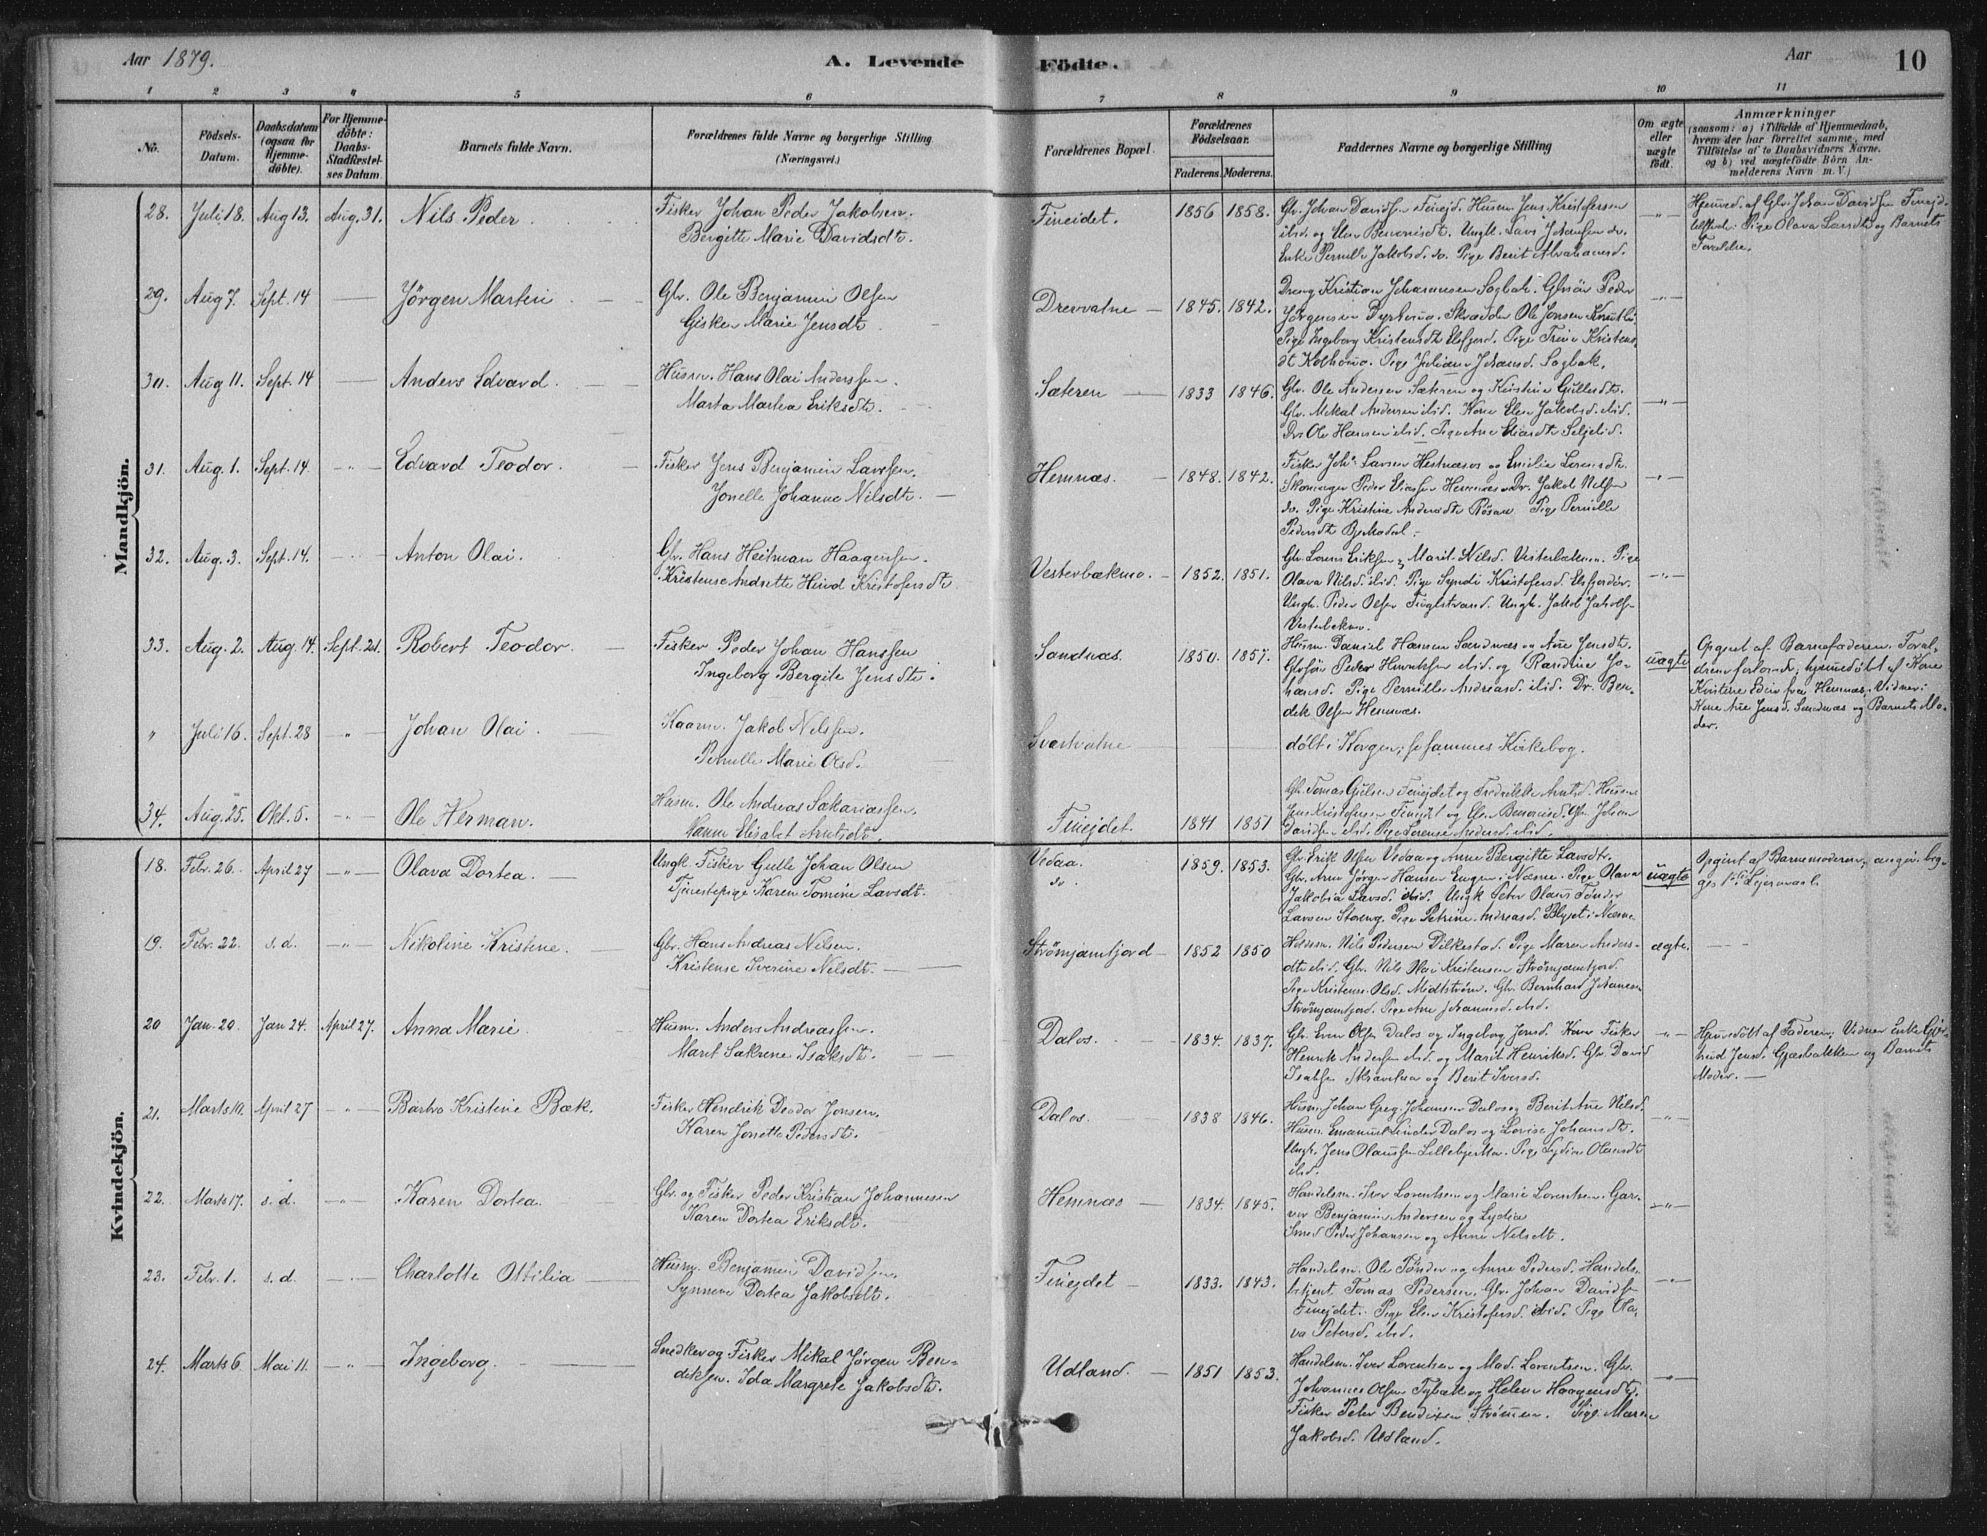 Aar 1879.
A. Levende
Födte.
Aar
10
1 2 3 4 5 6 7 8 9 10 11
No.
Födsels-
Datum.
Daabsdatum
(ogsaa for
Hjemme-
döbte).
For Hjemme-
döbte:
Daabs-
Stadfæstel-
ses Datum
Barnets fulde Navn.
Forældrenes fulde Navne og borgerlige Stilling
(Næringsvei.)
Forældrenes Bopæl.
Forældrenes
Födselsaar.
Faderens. Moderens.
Faddernes Navne og borgerlige Stilling
Om ægte
eller
uægte
födt.
Anmærkninger
(saasom: a) i Tilfælde af Hjemmedaab,
hvem der har forrettet samme, med
Tilföielse af to Daabsvidners Navne.
og b) ved uægtefödte Börn An-
melderens Navn m. V.)
Mandkjön.
28. Juli 18. Aug 13. Aug. 31. Nils Peder
Fisker Johan Peder Jakobsen.
Bergitte Marie Davidsdt.
Fineidet. 1856 1858.
Gbr. Johan Davidsen Finejd. Husm. Jens Kristofersen
ibid. og Elen Benonisdt. Ungk. Lars Johansen do.
Enke Pernille Jakobsd. do. Pige Berit Abrahamsd.
Hjemmed. af Gbr. Johan Davidsen Finejd.
tilstede: Pige Olava Larsdt. og Barnets
Forældre.
29. Aug 7. Sept. 14 — Jörgen Martin
Gbr. Ole Benjamin Olsen
Gisken Marie Jensdt.
Drevvatne — 1845. 1842.
Dreng Kristian Johannessen Sagbak. Gbrsön Peder
Jörgensen Dyrhaug. Skrædder Ole Jonsen
Pige Ingeborg Kristensdt. Elsfjord. Pige Trine Kristens
dt. Pige Juliane Johansd. Sagbak.
30. Aug 11. Sept. 14 — Anders Edvard.
Husm. Hans Olai Anderssen.
Marta Martea Eriksdt.
Sæteren — 1833 1846.
Gbr. Ole Andersen Sæteren og Kristine
Gbr. Mikal Andersen ibid. Kone Elen Jakobsd. ibid.
Dr. Ole Hansen ibid. Pige Ane Eliasdt.
31. Aug. 1. Sept. 14. Edvard Teodor.
Fisker Jens Benjamin Larssen.
Jonelle Johanne Nilsdt.
Hemnæs. 1848. 1842.
Fisker Johs. Larsen Hestnæsos og Emilie Lorensdt.
Skomager Peder Eliassen Hemnæs. Dr. Jakob Nilsen
do. Pige Kristine Andersdt. Røsaa. Pige Pernille
Pedersdt.
32. Aug. 3. Sept. 14. Anton Olai.
Gbr. Hans Heitman Haagensen.
Kristense Andrette Hind Kristofersdt.
Vesterbækmo. 1852. 1851.
Gbr. Lorens Eriksen og Marit Nilsd. Vesterbækmo. Pige
Olava Nilsd. ibid. Pige Synvi Kristofersd. Elsfjorden.
Ungk. Peder Olsen Fuglstrand. Ungk. Jakob Jakobs-
Vesterbækmo.
33. Aug. 2. Aug. 14. Sept. 21. Robert Teodor.
Fisker Peder Johan Hanssen
Ingeborg Bergite Jensdt.
Sandnæs. 1850. 1857.
Husm. Daniel Hansen Sandnæs og Ane Jensdt.
Gbrsön Peder Henriksen ibid. og Randine Jo-
hansd. Pige Pernille Andreasd. ibid. Dr. Ben-
dik Olsen Hemnæs.
uægte
Opgivet af Barnefaderen. Foræl-
drene forlovede; hjemmedöbt af Kone
Kristine Edin fra Hemnæs. Vidner:
Kone Ane Jensd. Sandnæs og Barnets Mo-
der.
" Juli 16. Sept. 28 " Johan Olai
Kaarm. Jakob Nilssen.
Pernille Marie Olsd.
Svartvatne
döbt i Korgen, se sammes Kirkebog.
34. Aug. 25. Okt. 5. Ole Herman.
Husm. Ole Andreas Sakariassen.
Hanna Elisabet Arntsdt.
Finejdet. 1841 1851
Gbr. Tomas Finejdet og Fredrikke Arntsd. Husm.
Jens Kristofersen Finejdet og Elen Benonisd. Gbr. Johan
Davidsen ibid. Pige Lorense Andersd. ibid.
Kvindekjön.
18. Febr. 26. April 27 Olava Dortea.
Ungk. Fisker Gulle Johan Olsen
Tjenestepige Karen Tomine Larsdt.
Vedaa.
do. 1859. 1853.
Gbr. Erik Olsen Vedaa og Anne Bergitte Larsdt.
Gbr. Arne Jörgen Hansen Engen i Næsne. Pige Olava
Jakobia Larsd. ibid. Ungk. Peter Olaus Tönder
Larsen Storeng. Pige Petrine Andreasd. i Næsne
uægte
Opgivet af Barnemoderen; angiv. beg-
ges 1ste Lejermaal.
19. Febr. 22. s. d. Nikoline Kristine.
Gbr. Hans Andreas Nilsen.
Kristense Iverine Nilsdt.
Strömjamtfjord — 1852 1850
Husm. Nils Pedersen Dilkestad. Pige Maren Anders-
dt. ibid. Gbr. Nils Olai Kristensen Strömjamtfjord.
Pige Kristense Olsd. Midtström. Gbr. Bernhard Johanesn.
Strömjamtfjord. Pige Ane Johannesd. ibid.
ægte.
20 Jan. 20. Jan 24. April 27. Anna Marie.
Husm. Anders Andreassen.
Marit Sakrine Isaksdt.
Dalos. 1834. 1837.
Gbr. Even Olsen Dalos og Ingeborg Jensd. Kone Fisker
Henrik Andersen ibid. og Marit Henriksd. Gbr. David
Isaksen og Berit Iversd.
Hjemmedöbt af Faderen. Vidner Enke
Jensd. Gjæsbakken og Barnets
Moder.
21. Marts 10. April 27 Barbro Kristine Bæk.
Fisker Hendrik Deodor Jonsen.
Karen Jonette Pedersdt.
Dalos. 1838 1846.
Husm. Johan Greg. Johansen Dalos og Berit Ane Nilsd.
Husm. Emanuel Linder Dalos og Lovise Johansdt.
Ungk. Jens Olaussen Lillebjerkm. Pige Lydia Olausdt.
ibid.
22. Marts 17. s. d. Karen Dortea.
Gbr. og Fisker Peder Kristian Johannessen
Karen Dortea Eriksdt.
Hemnæs — 1834. 1845.
Handelsm. Iver Lorentsen og Marie Lorentsen. Gar-
ver Benjamin Andersen og Lydia
Smed Peder Johansen og Anne Nilsdt.
23. Febr. 1. s. d. Charlotte Ottilia
Husm. Benjamin Davidsen.
Synneva Dortea Jakobsdt.
Finejdet — 1833. 1843.
Handelsm. Ole Tönder og Anne Pedersd. Handels-
betjent Tomas Pedersen. Gbr. Johan Davidsen
Finejdet. Pige Elen Kristofersd. ibid. Pige Ola-
va Petersd. ibid.
24. Marts 6. Mai 11. Ingeborg.
Snedker og Fisker Mikal Jörgen Ben-
diksen. Ida Margrete Jakobsdt.
Udland. — 1851 1853.
Handelsm. Iver Lorentsen og Mad. Lorentsen. Gbr.
Johannes Olsen Tybæk og Helene Haagensdt.
Fisker Peter Bendixen Strömmen. Pige Maren
Jakobsd. Udland.